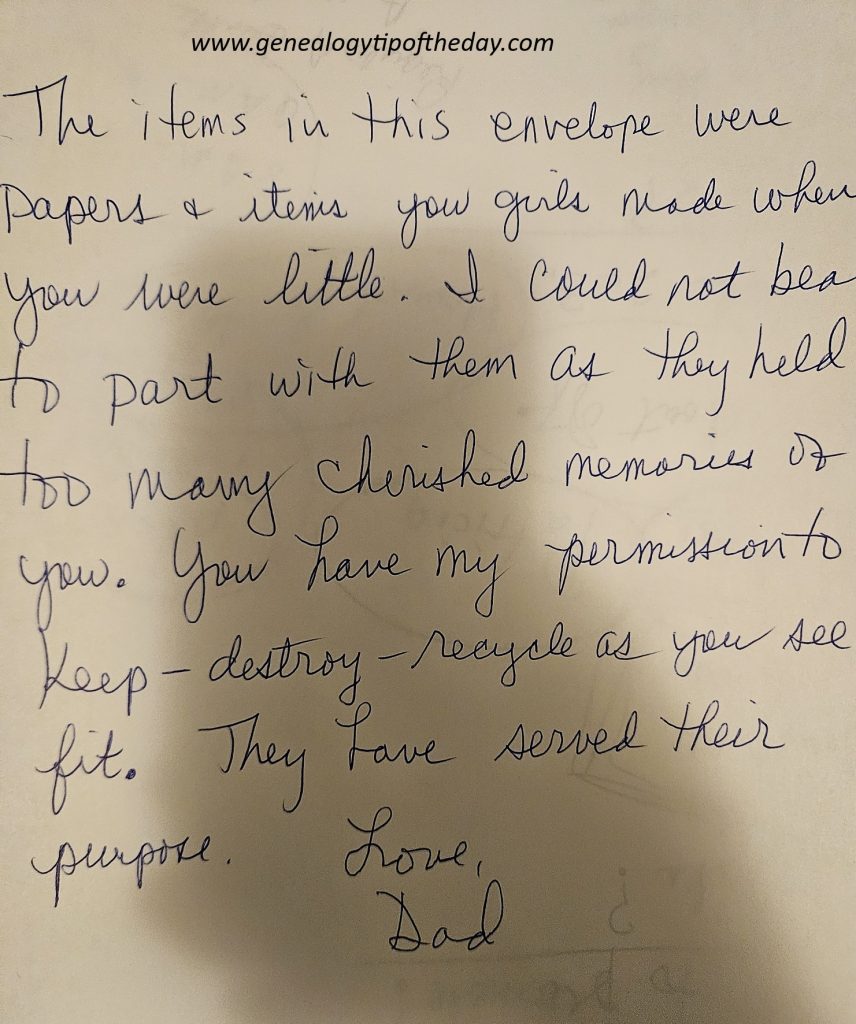 www.genealogytipoftheday.com
The items in this envelope were
papers & items you girls made when
you were little. I could not bea
to part with them as they held
too many cherished memories of
you. You have my permission to
keep - destroy - recycle as you see
fit. They have served their
purpose. Love,
Dad